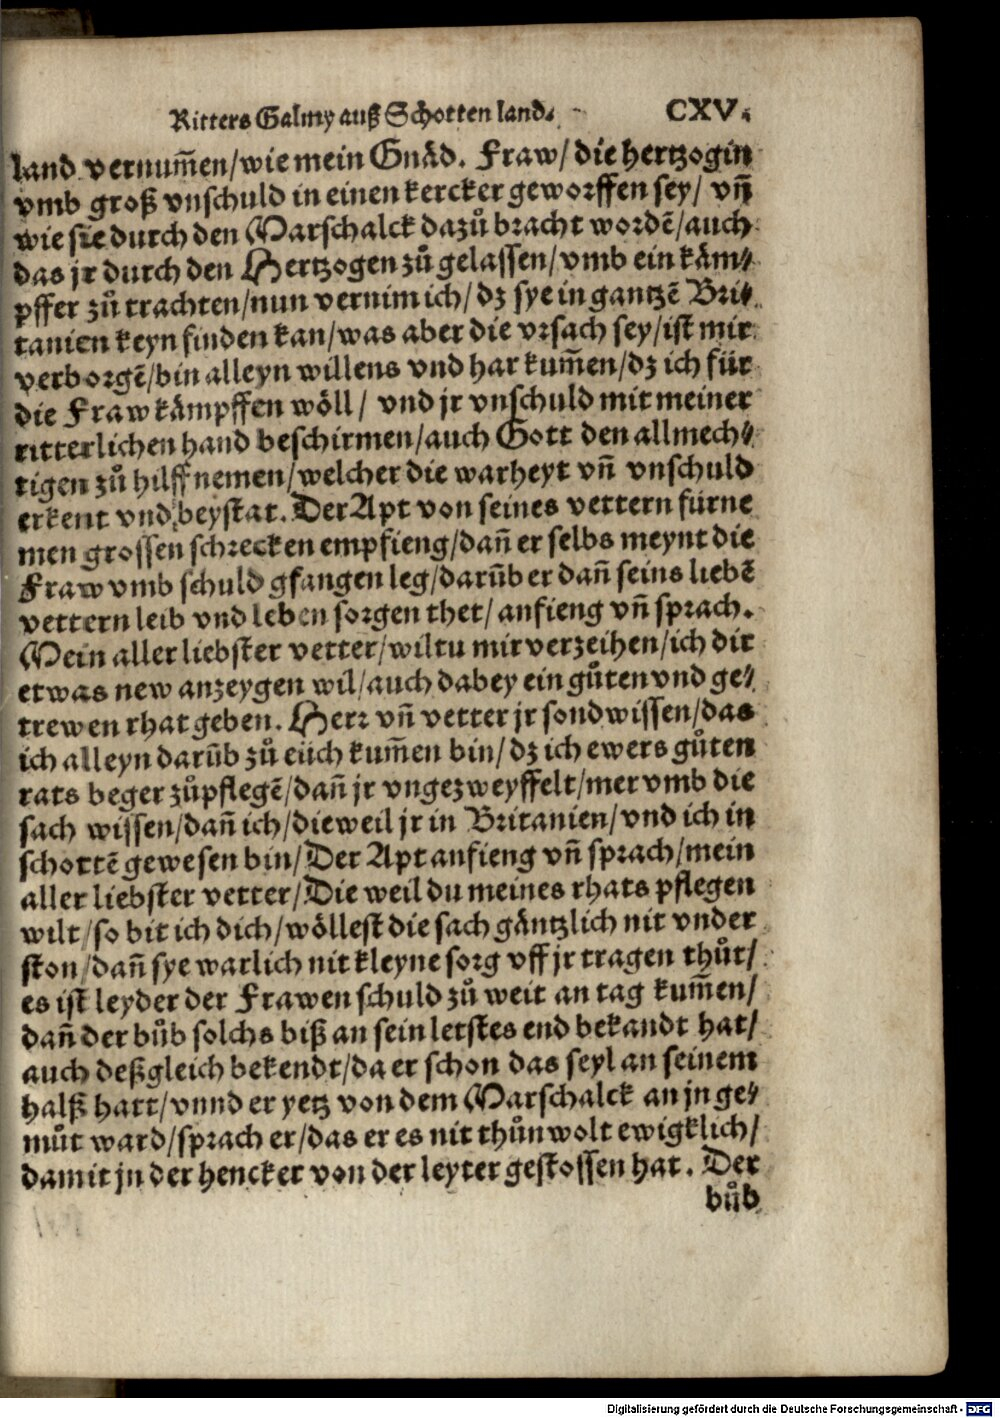 Ritters Galmy auß Schotten land. CXV.
land vernum̃en/wie mein Gnåd. Fraw/ die hertzogin
vmb groß vnschuld in einen kercker geworffen sey/ vñ
wie sie durch den Marschalck dazů bracht wordẽ/auch
das jr durch den Hertzogen zů gelassen/vmb ein kåm⸗
pffer zů trachten/nun vernim ich/ dz sye in gantzẽ Bri⸗
tanien keyn finden kan/was aber die vrsach sey/ist mir
verborgẽ/bin alleyn willens vnd har kum̃en/dz ich für
die Fraw kåmpffen wöll/ vnd jr vnschuld mit meiner
ritterlichen hand beschirmen/auch Gott den allmech⸗
tigen zů hilff nemen/welcher die warheyt vñ vnschuld
erkent vnd beystat. Der Apt von seines vettern fürne
men grossen schrecken empfieng/dañ er selbs meynt die
Fraw vmb schuld gfangen leg/darũb er dañ seins liebẽ
vettern leib vnd leben sorgen thet/ anfieng vñ sprach.
Mein aller liebster vetter/wiltu mir verzeihen/ich dir
etwas new anzeygen wil/auch dabey ein gůten vnd ge⸗
trewen rhat geben. Herr vñ vetter jr sond wissen/das
ich alleyn darũb zů eüch kum̃en bin/ dz ich ewers gůten
rats beger zůpflegẽ/dañ jr vngezweyffelt/mer vmb die
sach wissen/dañ ich/dieweil jr in Britanien/vnd ich in
schottẽ gewesen bin/Der Apt anfieng vñ sprach/mein
aller liebster vetter/Die weil du meines rhats pflegen
wilt/so bit ich dich/wöllest die sach gåntzlich nit vnder
ston/dañ sye warlich nit kleyne sorg vff jr tragen thůt/
es ist leyder der Frawen schuld zů weit an tag kum̃en/
dañ der bůb solchs biß an sein letstes end bekandt hat/
auch deßgleich bekendt/da er schon das seyl an seinem
halß hatt/vnnd er yetz von dem Marschalck an jn ge⸗
můt ward/sprach er/das er es nit thůn wolt ewigklich/
damit jn der hencker von der leyter gestossen hat. Der
bůb
Digitalisierung gefördert durch die Deutsche Forschungsgemeinschaft - DFG